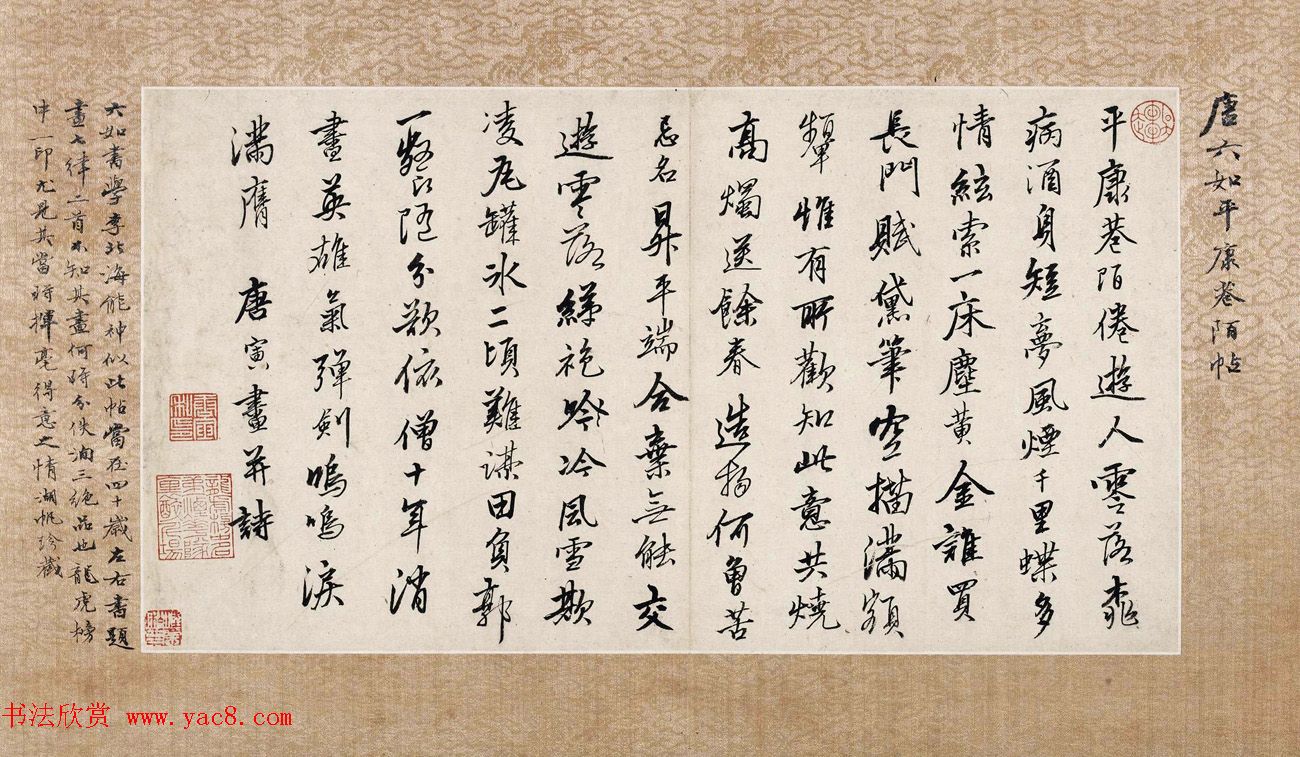 唐六如平康巷陌帖
平康巷陌倦遊人零落桃
病酒身短夢風煙千里蝶多
情絃索一床塵黃金誰買
長門賦黛筆空描滿額
顰惟有所歡知此意共燒
高燭送餘春造物何曾苦
忌名昇平端合棄無能交
遊零落綈袍吟冷風雪欺
凌瓦罐冰二頃難謀田負郭
一餐隨分欲依僧十年消
盡英雄氣彈劍嗚嗚淚
滿膺 唐寅畫并詩
六如書學李北海能神似此帖當在四十歲左右書題
畫七律二首不知其畫何時分佚洵三絕品也龍虎榜
中一印尤見其當時揮毫得意之情湖帆珍藏
书法欣赏 www.yac8.com